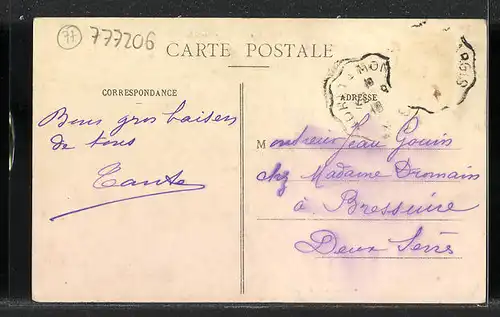 77 777206
CARTE POSTALE
CORRESPONDANCE
ADRESSE
Bons gros baisers
de tous
Tante
Monsieur Jean Gouin
chez Madame Dromain
à Bressuire
Deux Sèvres